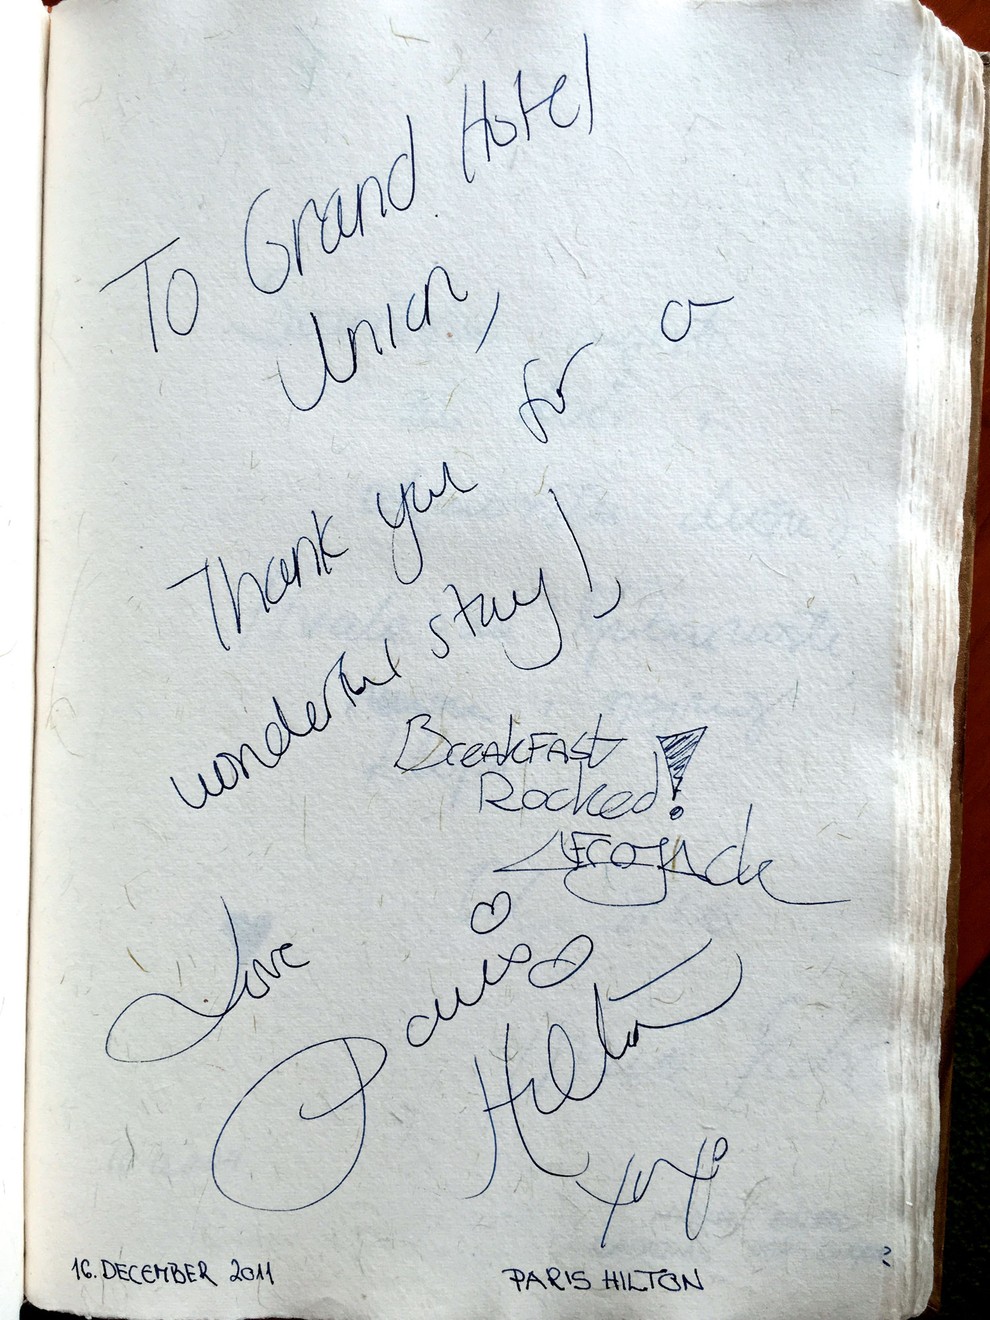 To Grand Hotel
Union,
Thank you for a
wonderful stay!
Breakfast
Rocked!
Love
Paris
Hilton
xoxo
16. DECEMBER 2011
PARIS HILTON
?